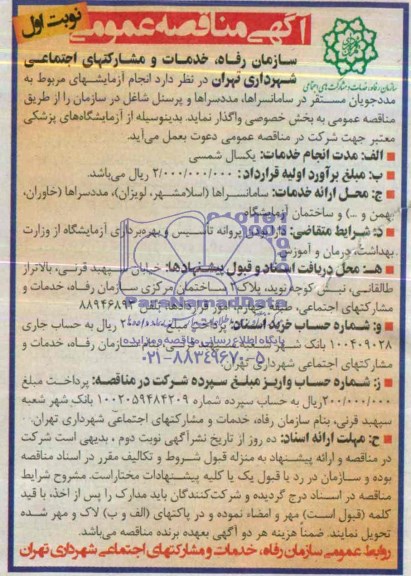 نوبت اول
آگهی مناقصه عمومی
سازمان رفاه، خدمات و مشارکتهای اجتماعی
شهرداری تهران در نظر دارد انجام آزمایشهای مربوط به
مددجویان مستقر در سامانسراها، مددسراها و پرسنل شاغل در سازمان را از طریق
مناقصه عمومی به بخش خصوصی واگذار نماید. بدینوسیله از آزمایشگاه‌های پزشکی
معتبر جهت شرکت در مناقصه عمومی دعوت بعمل می‌آید.
الف: مدت انجام خدمات: یکسال شمسی
ب: مبلغ برآورد اولیه قرارداد: ۲/۰۰۰/۰۰۰/۰۰۰ ریال می‌باشد.
ج: محل ارائه خدمات: سامانسراها (اسلامشهر، لویزان)، مددسراها (خاوران،
بهمن و ...) و ساختمان آزمایشگاه
د: شرایط متقاضی: دارا بودن پروانه تاسیس و بهره‌برداری آزمایشگاه از وزارت
بهداشت، درمان و آموزش
هـ: محل دریافت اسناد و قبول پیشنهادها: خیابان سپهبد قرنی، بالاتر از
طالقانی، نبش کوچه نوید، پلاک ساختمان مرکزی سازمان رفاه، خدمات و
مشارکتهای اجتماعی، طبقه چهارم، امور قراردادها، تلفن
و: شماره حساب خرید اسناد: پرداخت مبلغ ریال به حساب جاری
۱۰۰۴۰۹۰۲۸ بانک شهر بنام سازمان رفاه، خدمات و
مشارکتهای اجتماعی شهرداری تهران
ز: شماره حساب واریز مبلغ سپرده شرکت در مناقصه: پرداخت مبلغ
۲۰۰/۰۰۰/۰۰۰ ریال به حساب سپرده شماره ۱۰۰۲۰۵۹۴۸۴۲۰۹ بانک شهر شعبه
سپهبد قرنی، بنام سازمان رفاه، خدمات و مشارکتهای اجتماعی شهرداری تهران.
ح: مهلت ارائه اسناد: ده روز از تاریخ نشر آگهی نوبت دوم، بدیهی است شرکت
در مناقصه و ارائه پیشنهاد به منزله قبول شروط و تکالیف مقرر در اسناد مناقصه
بوده و سازمان در رد یا قبول یک یا کلیه پیشنهادات مختار است. مشروح شرایط
مناقصه در اسناد درج گردیده و شرکت‌کنندگان باید مدارک را پس از اخذ، با قید
کلمه (قبول است) مهر و امضاء نموده و در پاکتهای (الف و ب) لاک و مهر شده
تحویل نمایند. ضمناً هزینه هر دو آگهی بعهده برنده مناقصه می‌باشد.
روابط عمومی سازمان رفاه، خدمات و مشارکتهای اجتماعی شهرداری تهران
ParsNamadData
پایگاه اطلاع رسانی مناقصه و مزایده
۰۲۱-۸۸۳۴۹۶۷۰-۵